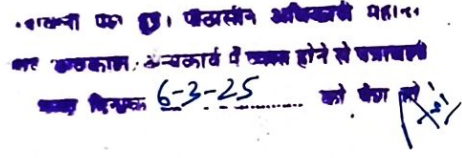 पत्रावली पेश हुई। पीठासीन अधिकारी महोदय
अवकाश/अन्यकार्य में व्यस्त होने से पत्रावली
दिनांक 6-3-25 को पेश हो